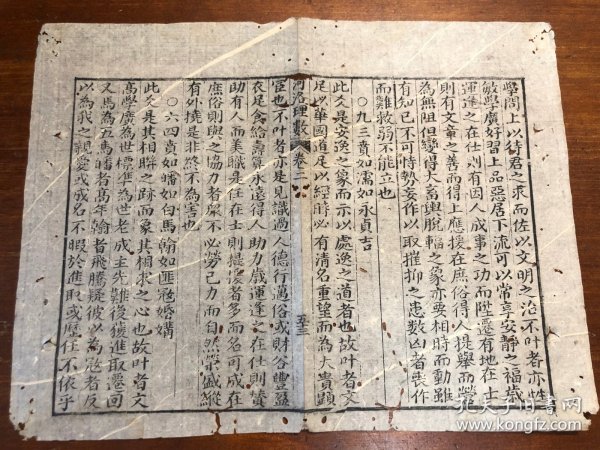 學問上以待君之求而佐以文明之治不叶者亦性
敏學廣好習上品惡居下流可以常享安靜之福歲
運逢之在仕則有因人成事之功而陞遷有地在士
則有文章之善而得上應援在庶俗得人提舉而營
為無阻但變得大畜輿脫輻之象亦要相時而動雖
有知已不可恃勢妄作以取摧抑之患數凶者喪作
而難救弱不能立也
○九三賁如濡如永貞吉
此爻是安逸之象而示以處逸之道者也故叶者文
足以華國道足以經時必有清名重望而為大貴顯
河洛理數 卷二 五十三
臣也不叶者亦是見識過人德行萬俗或財谷豐盈
衣足食給壽算永遠得人助力歲運逢之在仕則贊
助有人而美職是任在士則提援者多而名可成在
庶俗則與之協力者衆不必勞己力而自然榮盛縱
有外撓是非終不為害也
○六四賁如皤如白馬翰如匪寇婚媾
此爻是其相睽之跡而象其相求之心也故叶者文
高學廣為世標準為世老成主先難後獲進取遷回
又馬為五馬皤者高年翰者飛騰疑彼以為寇者反
以為我之親愛或成名不暇於進取或歷任不依乎
孔夫子旧书网
www.kongfz.com